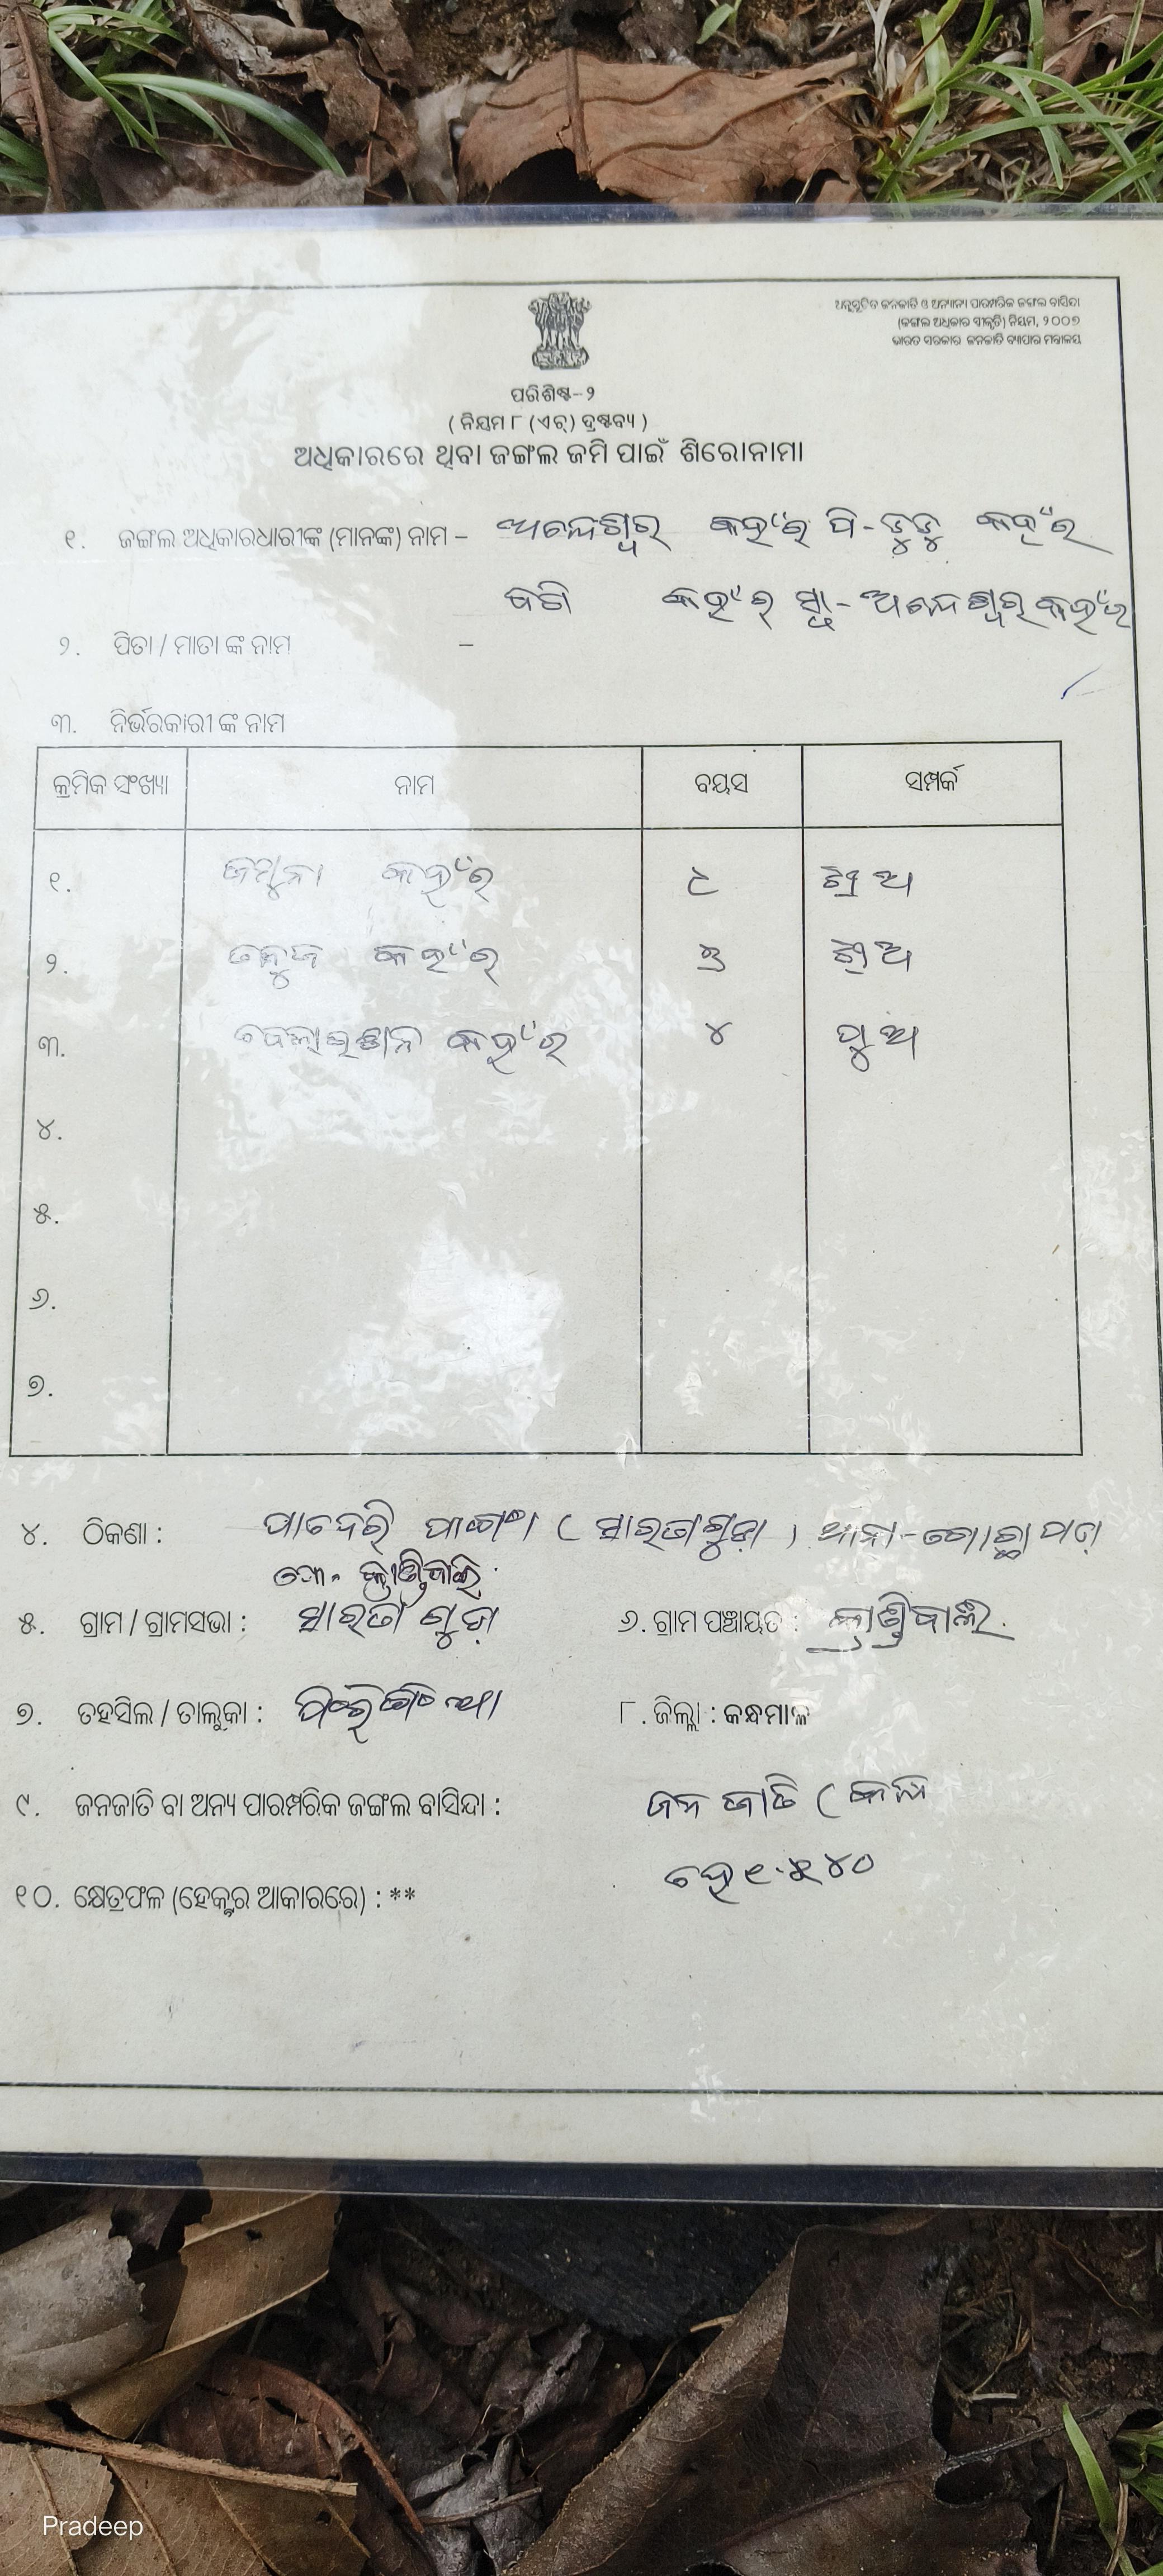 ଅନୁସୂଚିତ ଜନଜାତି ଓ ଅନ୍ୟାନ୍ୟ ପାରମ୍ପରିକ ଜଙ୍ଗଲ ବାସିନ୍ଦା
(ଜଙ୍ଗଲ ଅଧିକାର ସ୍ବୀକୃତି) ନିୟମ, ୨୦୦୭
ଭାରତ ସରକାର ଜନଜାତି ବ୍ୟାପାର ମନ୍ତ୍ରାଳୟ
ପରିଶିଷ୍ଟ-୨
( ନିୟମ ୮ (ଏଚ୍) ଦ୍ରଷ୍ଟବ୍ୟ )
ଅଧିକାରରେ ଥିବା ଜଙ୍ଗଲ ଜମି ପାଇଁ ଶିରୋନାମା
୧. ଜଙ୍ଗଲ ଅଧିକାରଧାରୀଙ୍କ (ମାନଙ୍କ) ନାମ – କହଁର ପି- କହଁର
କହଁର ସ୍ବା- କହଁର
୨. ପିତା / ମାତା ଙ୍କ ନାମ –
୩. ନିର୍ଭରକାରୀ ଙ୍କ ନାମ
କ୍ରମିକ ସଂଖ୍ୟା ନାମ ବୟସ ସମ୍ପର୍କ
୧. ଜମୁନା କହଁର ୯ ଝିଅ
୨. ତନୁଜା କହଁର ୬ ଝିଅ
୩. କହଁର ୪ ପୁଅ
୪.
୫.
୬.
୭.
୪. ଠିକଣା : ( ସାରତାଗୁଡ଼ା ) ଥାନା-ଗୋଛାପଡ଼ା
୫. ଗ୍ରାମ / ଗ୍ରାମସଭା : ସାରତାଗୁଡ଼ା ୬. ଗ୍ରାମ ପଞ୍ଚାୟତ :
୭. ତହସିଲ / ତାଲୁକା : ଫିରିଙ୍ଗିଆ ୮. ଜିଲ୍ଲା : କନ୍ଧମାଳ
୯. ଜନଜାତି ବା ଅନ୍ୟ ପାରମ୍ପରିକ ଜଙ୍ଗଲ ବାସିନ୍ଦା : ଜନଜାତି (
୧୦. କ୍ଷେତ୍ରଫଳ (ହେକ୍ଟର ଆକାରରେ) : ** ହେ ୧.୫୪୦
Pradeep